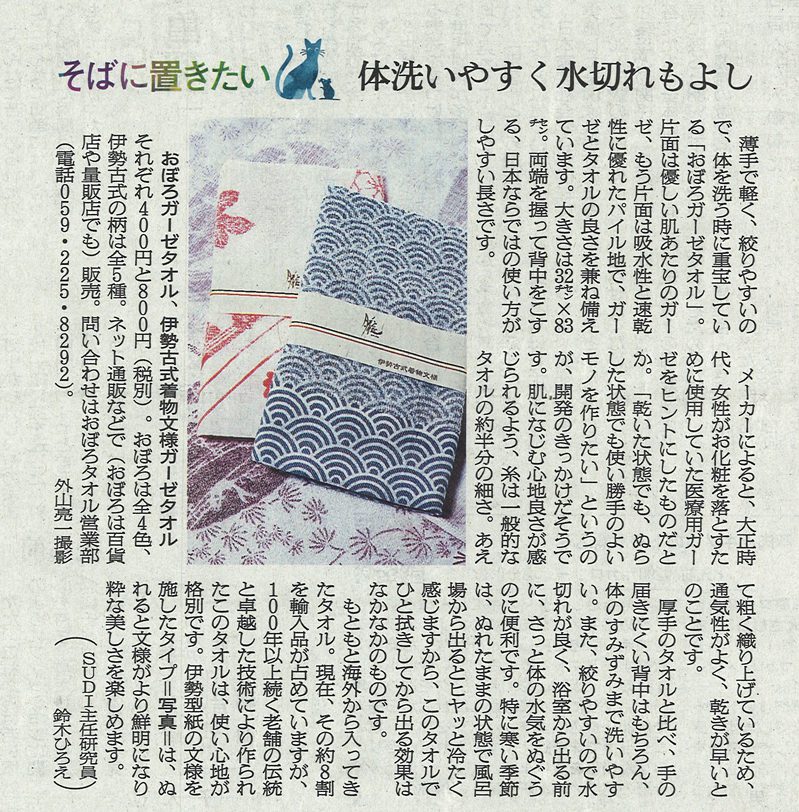 そばに置きたい
体洗いやすく水切れもよし
薄手で軽く、絞りやすいの
で、体を洗う時に重宝してい
る「おぼろガーゼタオル」。
片面は優しい肌あたりのガー
ゼ、もう片面は吸水性と速乾
性に優れたパイル地で、ガー
ゼとタオルの良さを兼ね備え
ています。大きさは32㌢×83
㌢。両端を握って背中をこす
る、日本ならではの使い方が
しやすい長さです。
メーカーによると、大正時
代、女性がお化粧を落とすた
めに使用していた医療用ガー
ゼをヒントにしたものだと
か。「乾いた状態でも、ぬら
した状態でも使い勝手のよい
モノを作りたい」というの
が、開発のきっかけだそうで
す。肌になじむ心地良さが感
じられるよう、糸は一般的な
タオルの約半分の細さ。あえ
て粗く織り上げているため、
通気性がよく、乾きが早いと
のことです。
厚手のタオルと比べ、手の
届きにくい背中はもちろん、
体のすみずみまで洗いやす
い。また、絞りやすいので水
切れが良く、浴室から出る前
に、さっと体の水気をぬぐう
のに便利です。特に寒い季節
は、ぬれたままの状態で風呂
場から出るとヒヤッと冷たく
感じますから、このタオルで
ひと拭きしてから出る効果は
なかなかのものです。
もともと海外から入ってき
たタオル。現在、その約8割
を輸入品が占めていますが、
100年以上続く老舗の伝統
と卓越した技術により作られ
たこのタオルは、使い心地が
格別です。伊勢型紙の文様を
施したタイプ＝写真＝は、ぬ
れると文様がより鮮明になり
粋な美しさを楽しめます。
（SUDI主任研究員
鈴木ひろえ）
おぼろガーゼタオル、伊勢古式着物文様ガーゼタオル
それぞれ400円と800円（税別）。おぼろは全4色、
伊勢古式の柄は全5種。ネット通販などで（おぼろは百貨
店や量販店でも）販売。問い合わせはおぼろタオル営業部
（電話059・225・8292）。
外山亮一撮影
伊勢古式着物文様